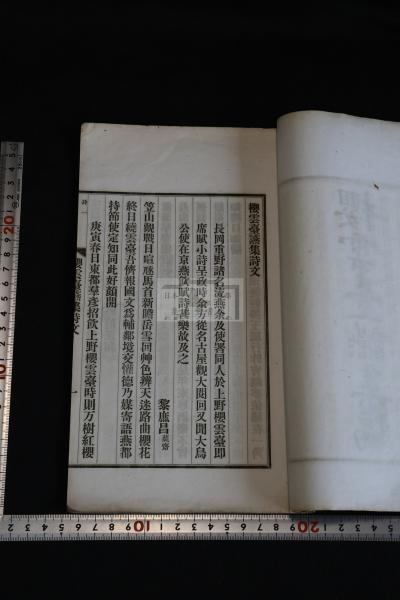 櫻雲臺讌集詩文
長岡重野諸之流燕余及使署同人於上野櫻雲臺即
席賦小詩呈政時余方從名古屋觀大閱回又聞大鳥
公使在京燕飲賦詩甚樂故及之
黎庶昌蒓齋
笠山觀戰日喧豗馬首新瞻岳雪回艸色辨天迷路曲櫻花
終日繞雲臺吾儕報國文爲輔鄰境交灌德乃媒寄語燕都
持節使定知同此好顏開
庚寅春日東都羣彥招飲上野櫻雲臺時則万樹紅櫻
櫻雲臺讌集詩文
一